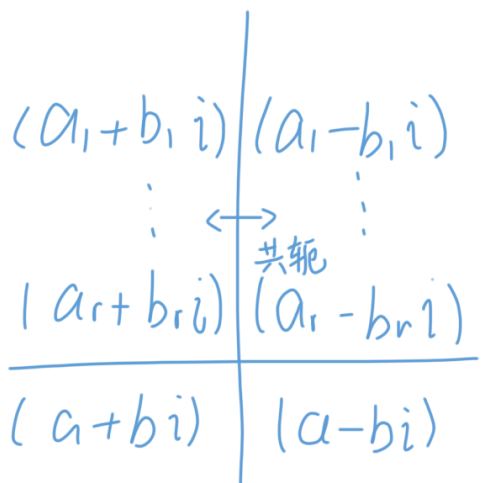 (a₁+b₁i) (a₁-b₁i)
⋮ ↔ ⋮
共轭
(aᵣ+bᵣi) (aᵣ-bᵣi)
(a+bi) (a-bi)